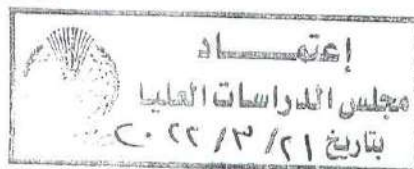 إعتمـــــاد
مجلس الدراسات العليا
بتاريخ ٢١/ ٣/ ٢٠٢٢